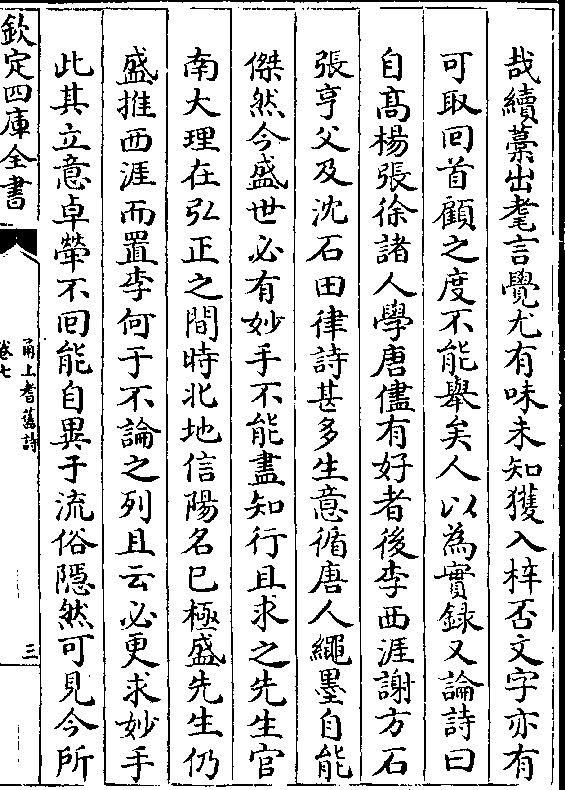 哉續藁出耄言覺尤有味未知獲入梓否文字亦有
可取回首顧之度不能舉矣人以為實録又論詩曰
自髙楊張徐諸人學唐儘有好者後李西涯謝方石
張亨父及沈石田律詩甚多生意循唐人繩墨自能
傑然今盛世必有妙手不能盡知行且求之先生官
南大理在弘正之間時北地信陽名已極盛先生仍
盛推西涯而置李何于不論之列且云必更求妙手
此其立意卓犖不囘能自異于流俗隠然可見今所
欽定四庫全書
甬上耆舊詩
卷七
三